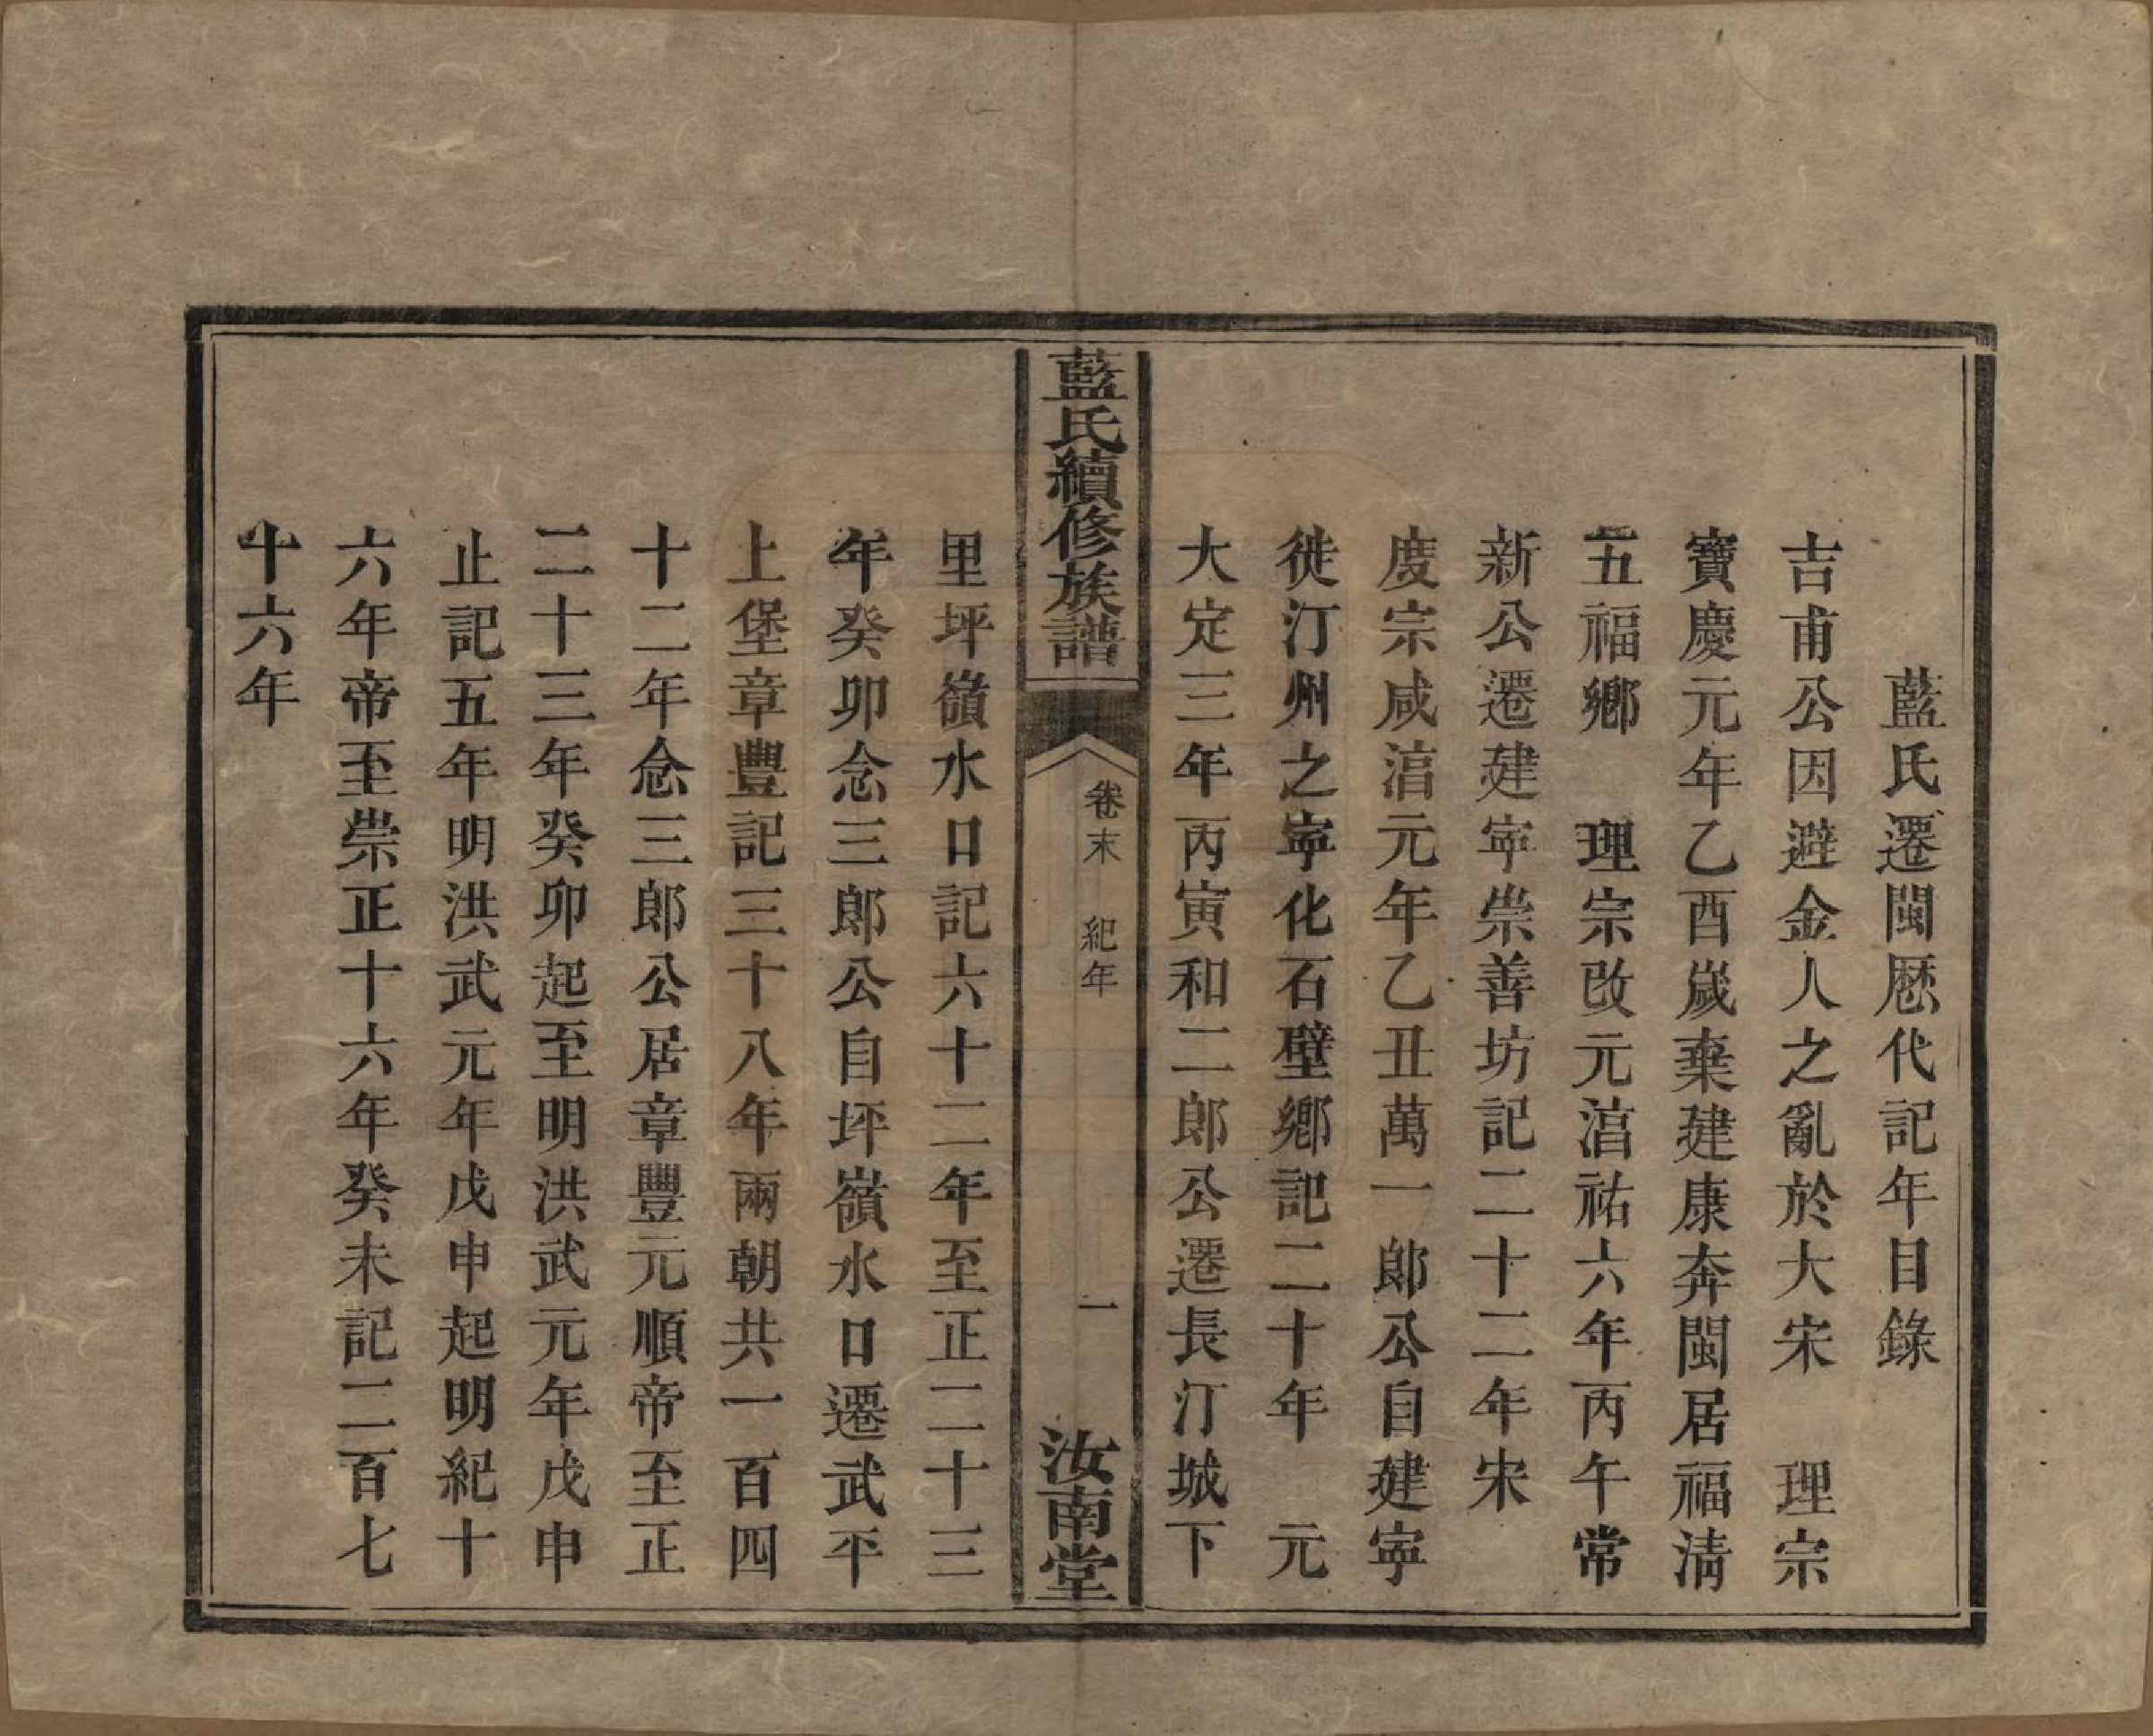 藍氏遷閩厯代記年目錄
吉甫公因避金人之亂於大宋　理宗
寶慶元年乙酉嵗棄建康奔閩居福淸
五福鄉　理宗改元湻祐六年丙午常
新公遷建寧崇善坊記二十二年宋
度宗咸湻元年乙丑萬一郞公自建寧
徙汀州之寧化石壁鄉記二十年　元
大定三年丙寅和二郞公遷長汀城下
藍氏續修族譜　卷末　紀年　一　汝南堂
里坪嶺水口記六十二年至正二十三
年癸卯念三郞公自坪嶺水口遷武平
上堡章豐記三十八年兩朝共一百四
十二年念三郞公居章豐元順帝至正
二十三年癸卯起至明洪武元年戊申
止記五年明洪武元年戊申起明紀十
六年帝至崇正十六年癸未記二百七
十六年